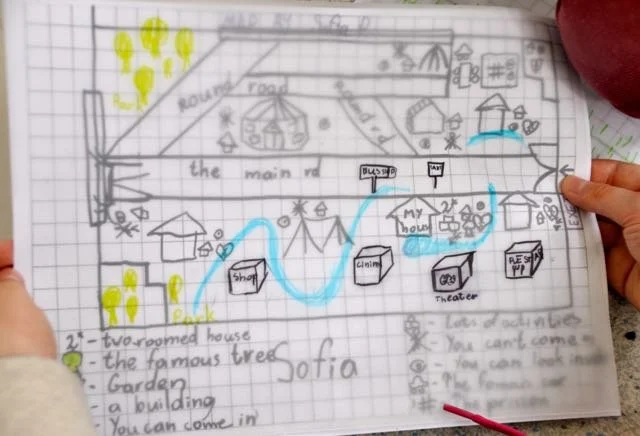 MAP BY Sofia P
Park
Round road
Round rd
the main rd
BUS STOP
TAXI
MY
hous
2*
Shop
Cinima
Theater
Park
2* - two-roomed house
- the famous tree
- Garden
- a building
- You can come in
Sofia
- Lots of activities
- You can't come in
- You can look inside
- The famous
# - The prison